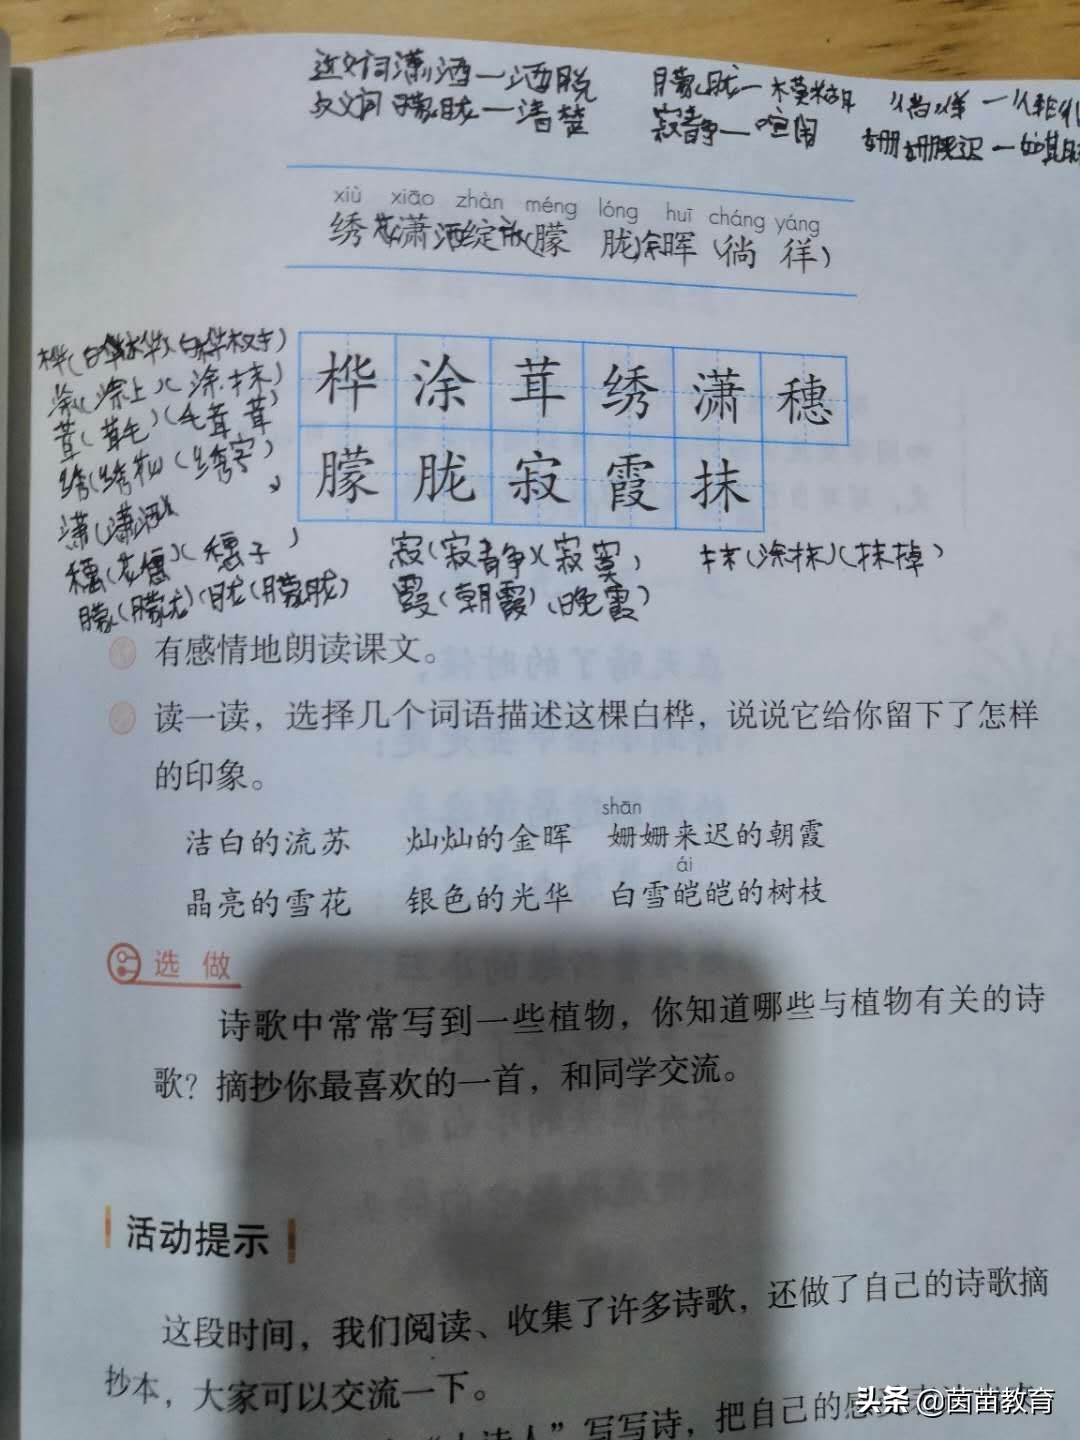 近义词 潇洒—洒脱 朦胧—模糊 徜徉—
反义词 朦胧—清楚 寂静—喧闹 姗姗来迟—
xiù xiāo zhàn méng lóng huī cháng yáng
绣花 潇洒 绽放(朦 胧)余晖(徜 徉)
桦 涂 茸 绣 潇 穗
朦 胧 寂 霞 抹
桦(白桦)(白桦树)
涂(涂上)(涂抹)
茸(茸毛)(毛茸茸)
绣(绣花)(绣字)
潇(潇洒)
穗(花穗)(穗子)
朦(朦胧)胧(朦胧)
寂(寂静)(寂寞) 抹(涂抹)(抹掉)
霞(朝霞)(晚霞)
有感情地朗读课文。
读一读,选择几个词语描述这棵白桦,说说它给你留下了怎样
的印象。
shān
洁白的流苏 灿灿的金晖 姗姗来迟的朝霞
ái
晶亮的雪花 银色的光华 白雪皑皑的树枝
选做
诗歌中常常写到一些植物,你知道哪些与植物有关的诗
歌?摘抄你最喜欢的一首,和同学交流。
活动提示
这段时间,我们阅读、收集了许多诗歌,还做了自己的诗歌摘
抄本,大家可以交流一下。
诗人”写写诗,把自己的感
头条 @茵苗教育